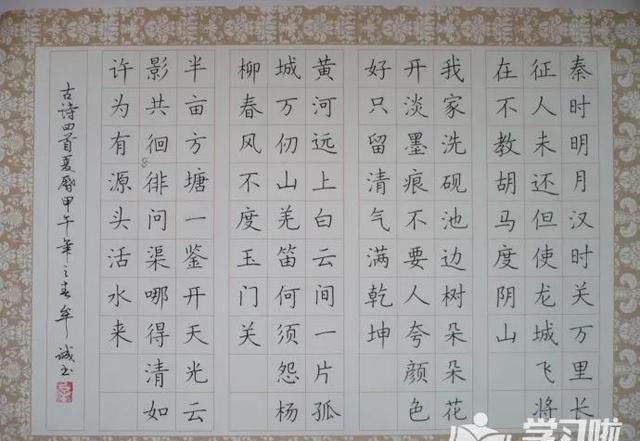 秦时明月汉时关万里长
征人未还但使龙城飞将
在不教胡马度阴山
我家洗砚池边树朵朵花
开淡墨痕不要人夸颜色
好只留清气满乾坤
黄河远上白云间一片孤
城万仞山羌笛何须怨杨
柳春风不度玉门关
半亩方塘一鉴开天光云
影共徊徘问渠哪得清如
许为有源头活水来
古诗四首夏历甲午年之春牟诚书
学习啦